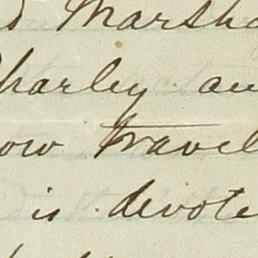 d Marsha
Charley an
ow travel
is devote